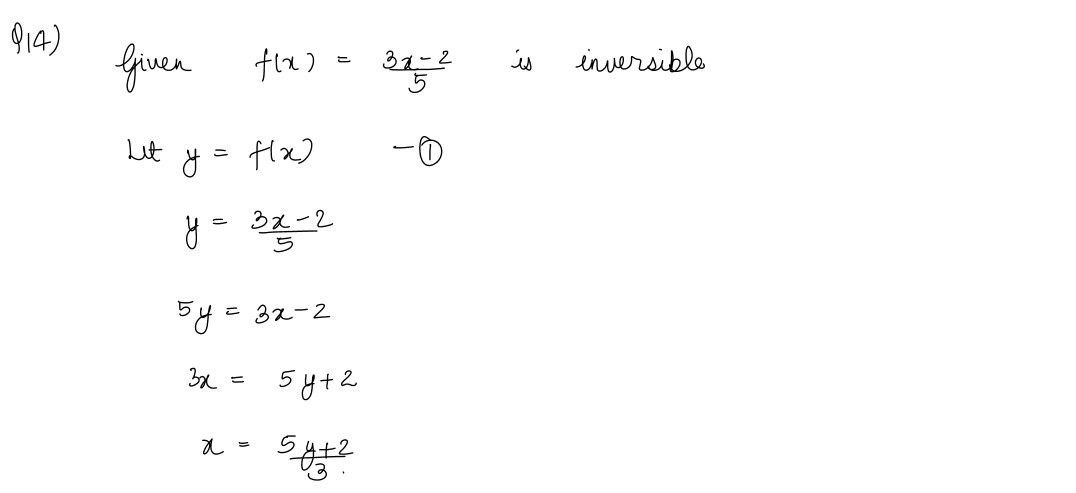 Q14) Given f(x) = (3x-2)/5 is inversible
Let y = f(x) - ①
y = (3x-2)/5
5y = 3x-2
3x = 5y+2
x = (5y+2)/3.